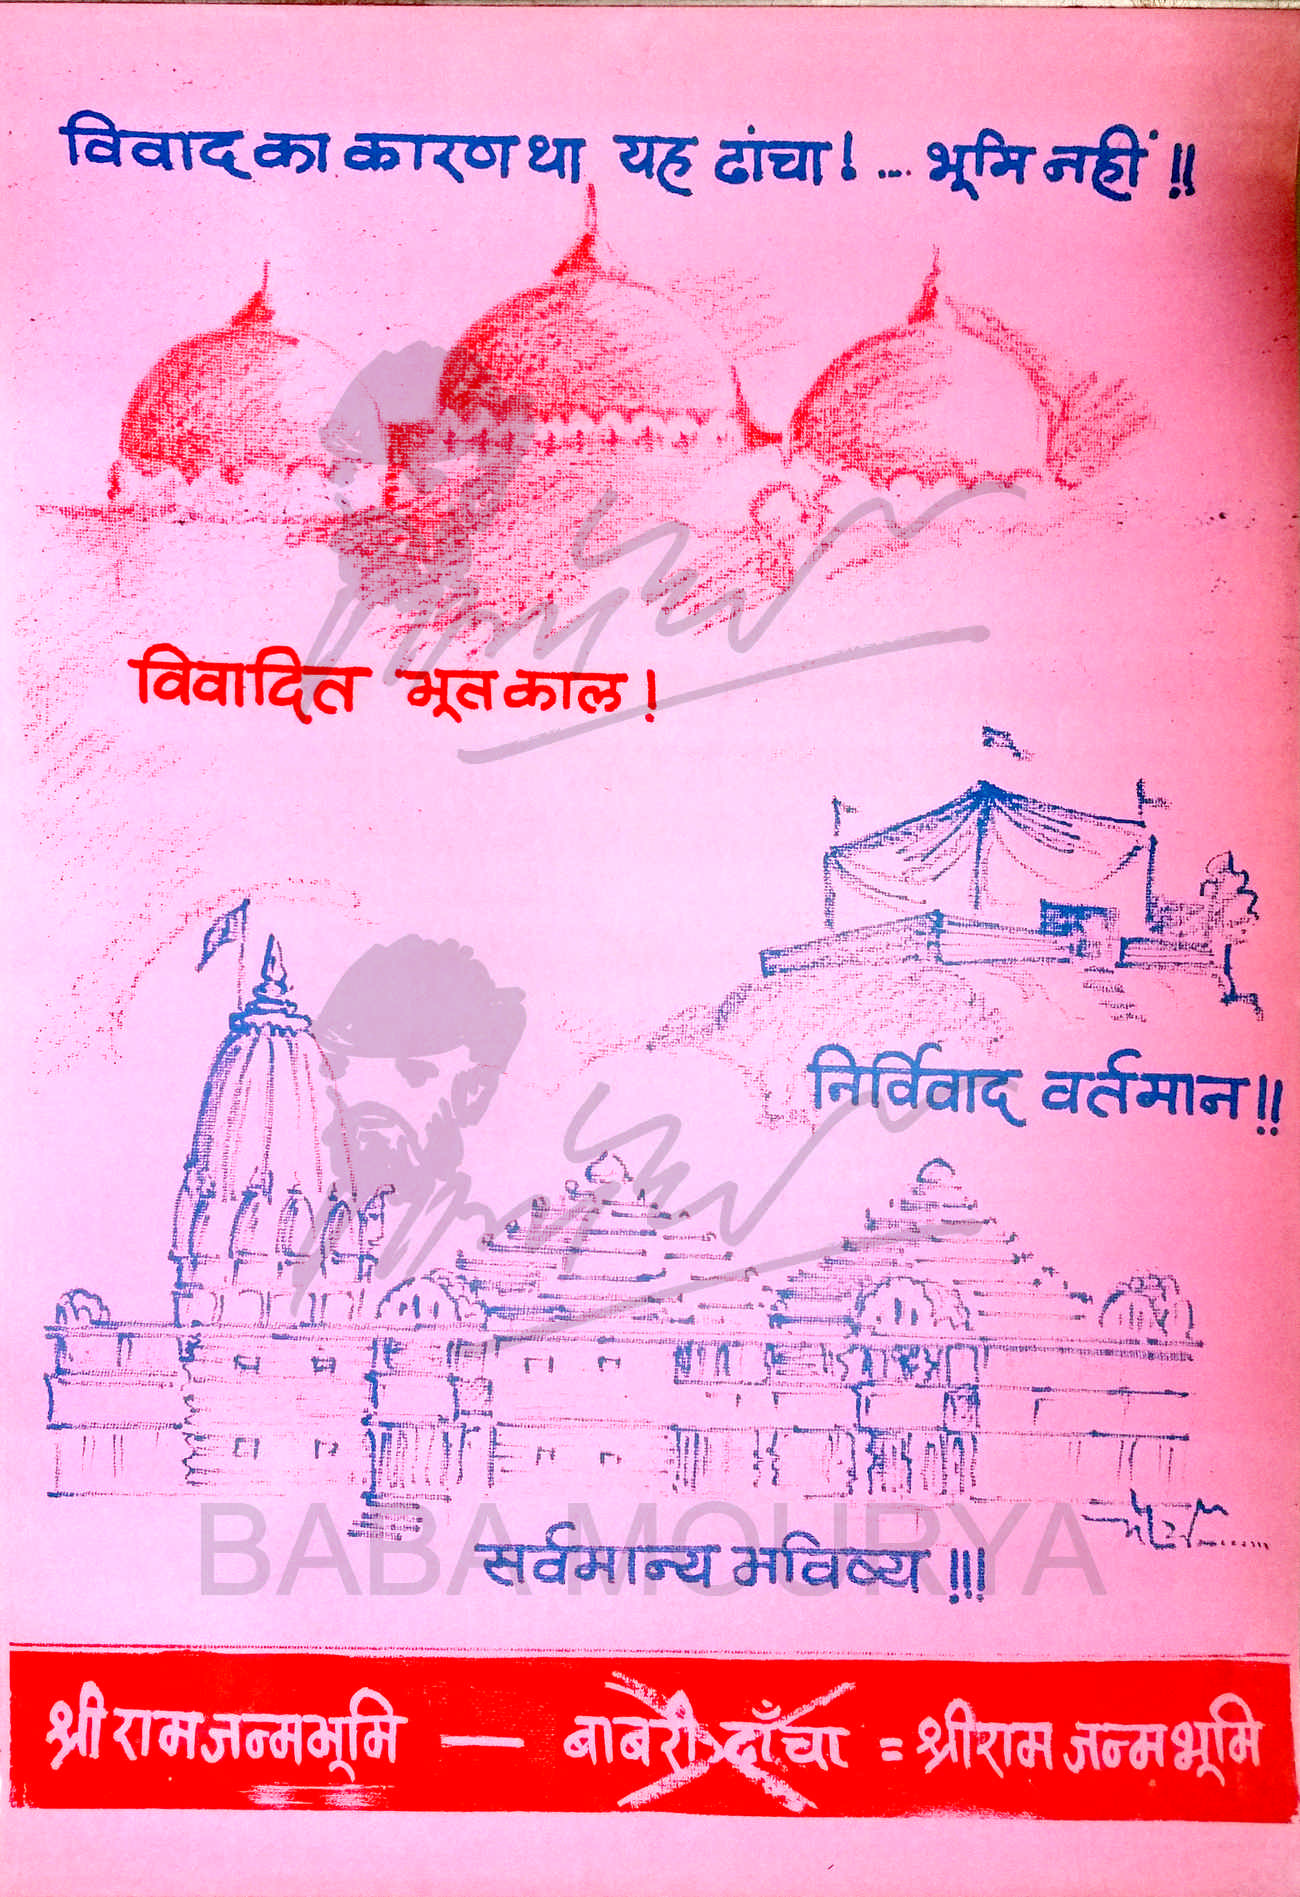 विवाद का कारण था यह ढांचा!... भूमि नहीं!!
विवादित भूतकाल!
निर्विवाद वर्तमान!!
BABA MOURYA
सर्वमान्य भविष्य!!!
श्रीराम जन्मभूमि — बाबरी ढाँचा = श्रीराम जन्मभूमि